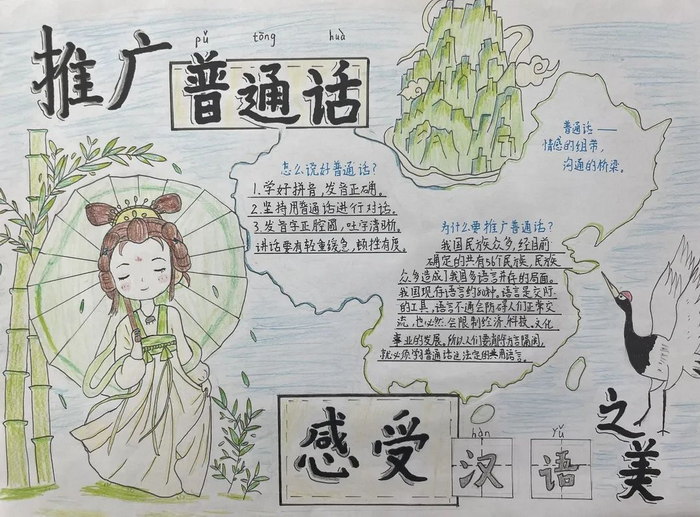 pǔ tōng huà
推广普通话
普通话——
情感的纽带，
沟通的桥梁。
怎么说好普通话？
1.学好拼音，发音正确。
2.坚持用普通话进行对话。
3.发音字正腔圆，吐字清晰。
讲话要有轻重缓急，顿挫有度。
为什么要推广普通话？
我国民族众多，经目前
确定的共有56个民族，民族
众多造成了我国多语言并存的局面。
我国现存语言约80种，语言是交际
的工具，语言不通会防碍人们正常交
流，也必然会限制经济，科技，文化
事业的发展。所以人们要消除方言隔阂，
就必须学普通话这法定的共用语言。
hàn yǔ
感受汉语
之美